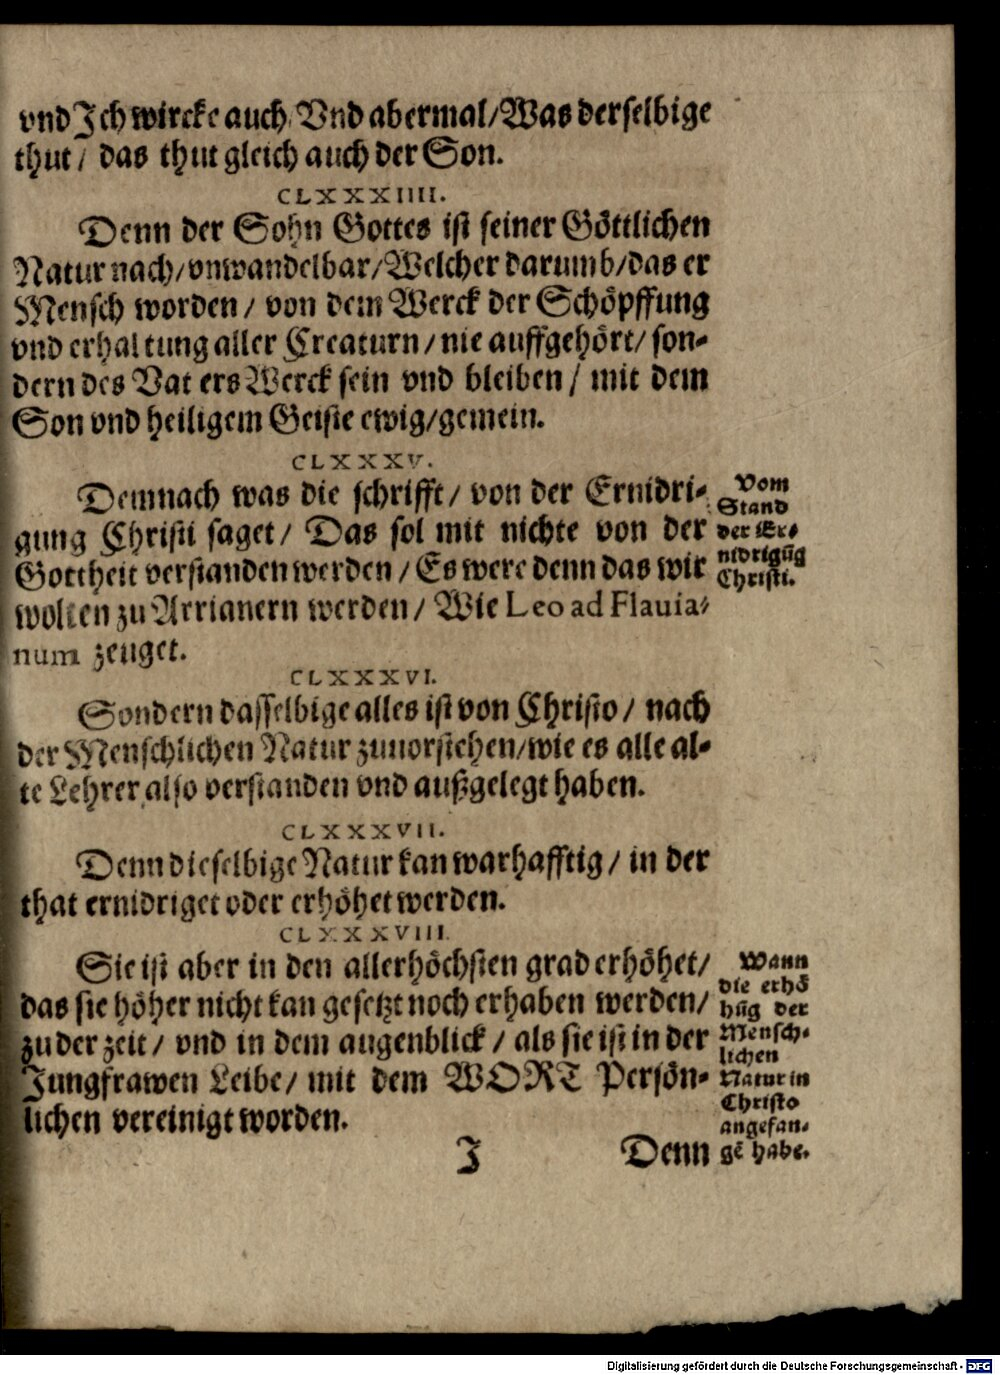 vnd Ich wircke auch / Vnd abermal / Was derselbige
thut / das thut gleich auch der Son.
CLXXXIIII.
Denn der Sohn Gottes ist seiner Göttlichen
Natur nach / vnwandelbar / Welcher darumb / das er
Mensch worden / von dem Werck der Schöpffung
vnd erhaltung aller Creaturn / nie auffgehört / son-
dern des Vaters Werck sein vnd bleiben / mit dem
Son vnd heiligem Geiste ewig / gemein.
CLXXXV.
Demnach was die schrifft / von der Ernidri-
gung Christi saget / Das sol mit nichte von der
Gottheit verstanden werden / Es were denn das wir
wolten zu Arrianern werden / Wie Leo ad Flauia-
num zeuget.
Vom
Stand
der Er-
nidrigūg
Christi.
CLXXXVI.
Sondern dasselbige alles ist von Christo / nach
der Menschlichen Natur zuuorstehen / wie es alle al-
te Lehrer also verstanden vnd außgelegt haben.
CLXXXVII.
Denn dieselbige Natur kan warhafftig / in der
that ernidriget oder erhöhet werden.
CLXXXVIII.
Sie ist aber in den allerhöchsten grad erhöhet /
das sie höher nicht kan gesetzt noch erhaben werden /
zu der zeit / vnd in dem augenblick / als sie ist in der
Jungfrawen Leibe / mit dem WORT Persön-
lichen vereinigt worden.
Wann
die erhö
hūg der
Mensch-
lichen
Natur in
Christo
angefan-
gē habe.
J Denn
Digitalisierung gefördert durch die Deutsche Forschungsgemeinschaft - DFG